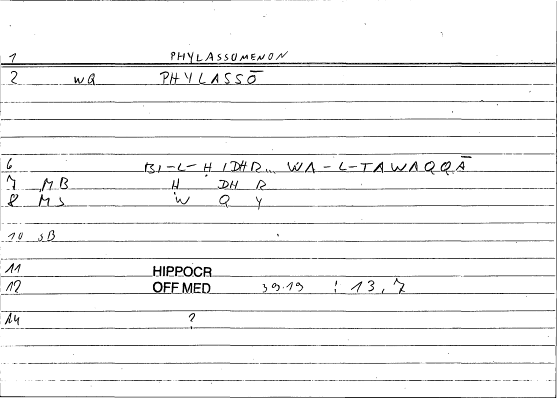 1 PHYLASSOMENON
2 WQ PHYLASSŌ
6 BI-L-ḤIDHR... WA-L-TAWAQQĀ
7 MB Ḥ DH R
8 MS W Q Y
10 SB
11 HIPPOCR
12 OFF MED 39.19 : 13,7
14 ?